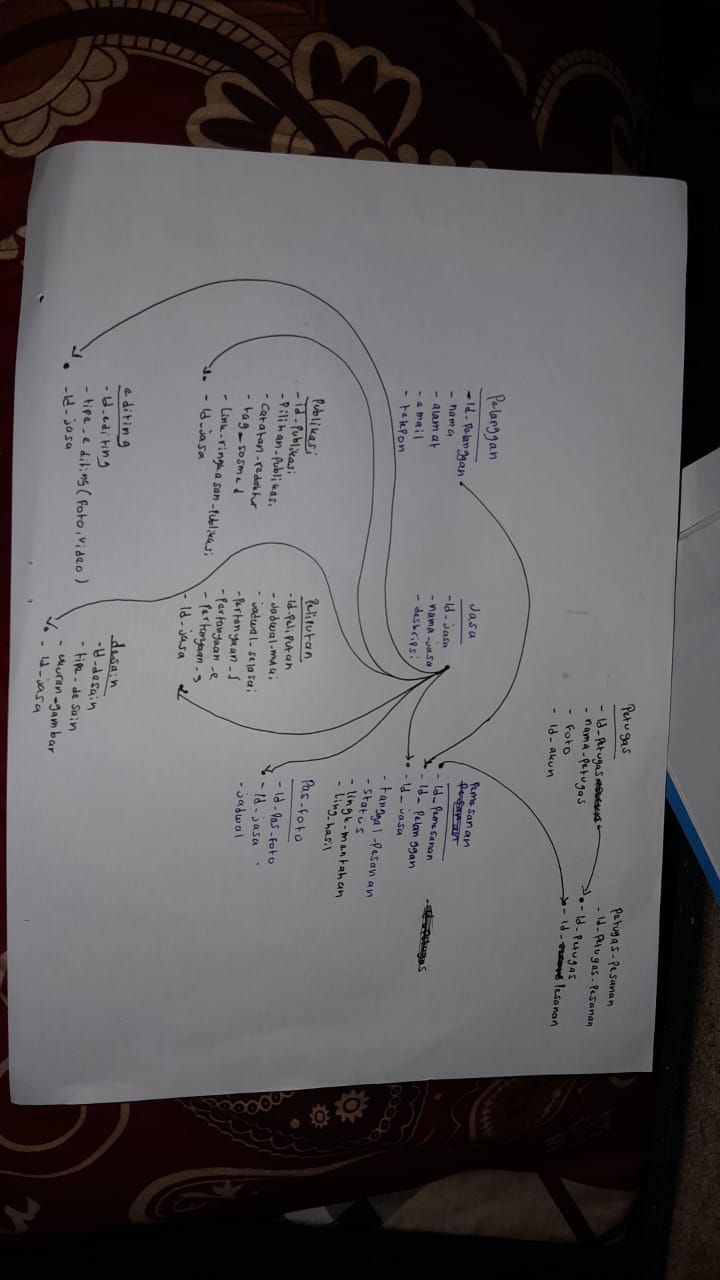 Petugas
- Id_Petugas
- nama-Petugas
- Foto
- Id_akun
Petugas-Pesanan
- Id_Petugas-Pesanan
- Id_Petugas
- Id_ Pesanan
Pelanggan
- Id_Pelanggan
- nama
- alamat
- email
- telepon
Jasa
- Id_jasa
- nama_jasa
- deskripsi
Pemesanan
Pesanan
- Id_Pemesanan
- Id_Pelanggan
- Id_jasa
- tanggal_Pesanan
- status
- lingk-mentahan
- Ling_hasil
- Id_Petugas
Publikasi
- Id_Publikasi
- Pilihan-Publikasi
- catatan-redaktur
- tag_sosmed
- Link-ringkasan-Publikasi
- Id_jasa
Peliputan
- Id_Peliputan
- Jadwal-mulai
- jadwal_selesai
- Pertanyaan_1
- Pertanyaan_2
- Pertanyaan_3
- Id_jasa
Pas-foto
- Id_Pas_foto
- Id_jasa
- jadwal
editing
- Id_editing
- tipe_editing (foto, video)
- Id_jasa
desain
- Id_desain
- tipe_desain
- ukuran_gambar
- Id_jasa